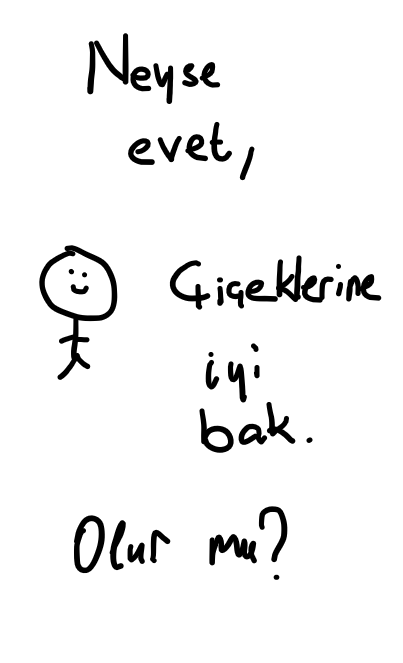 Neyse
evet,
Çiçeklerine
iyi
bak.
Olur mu?